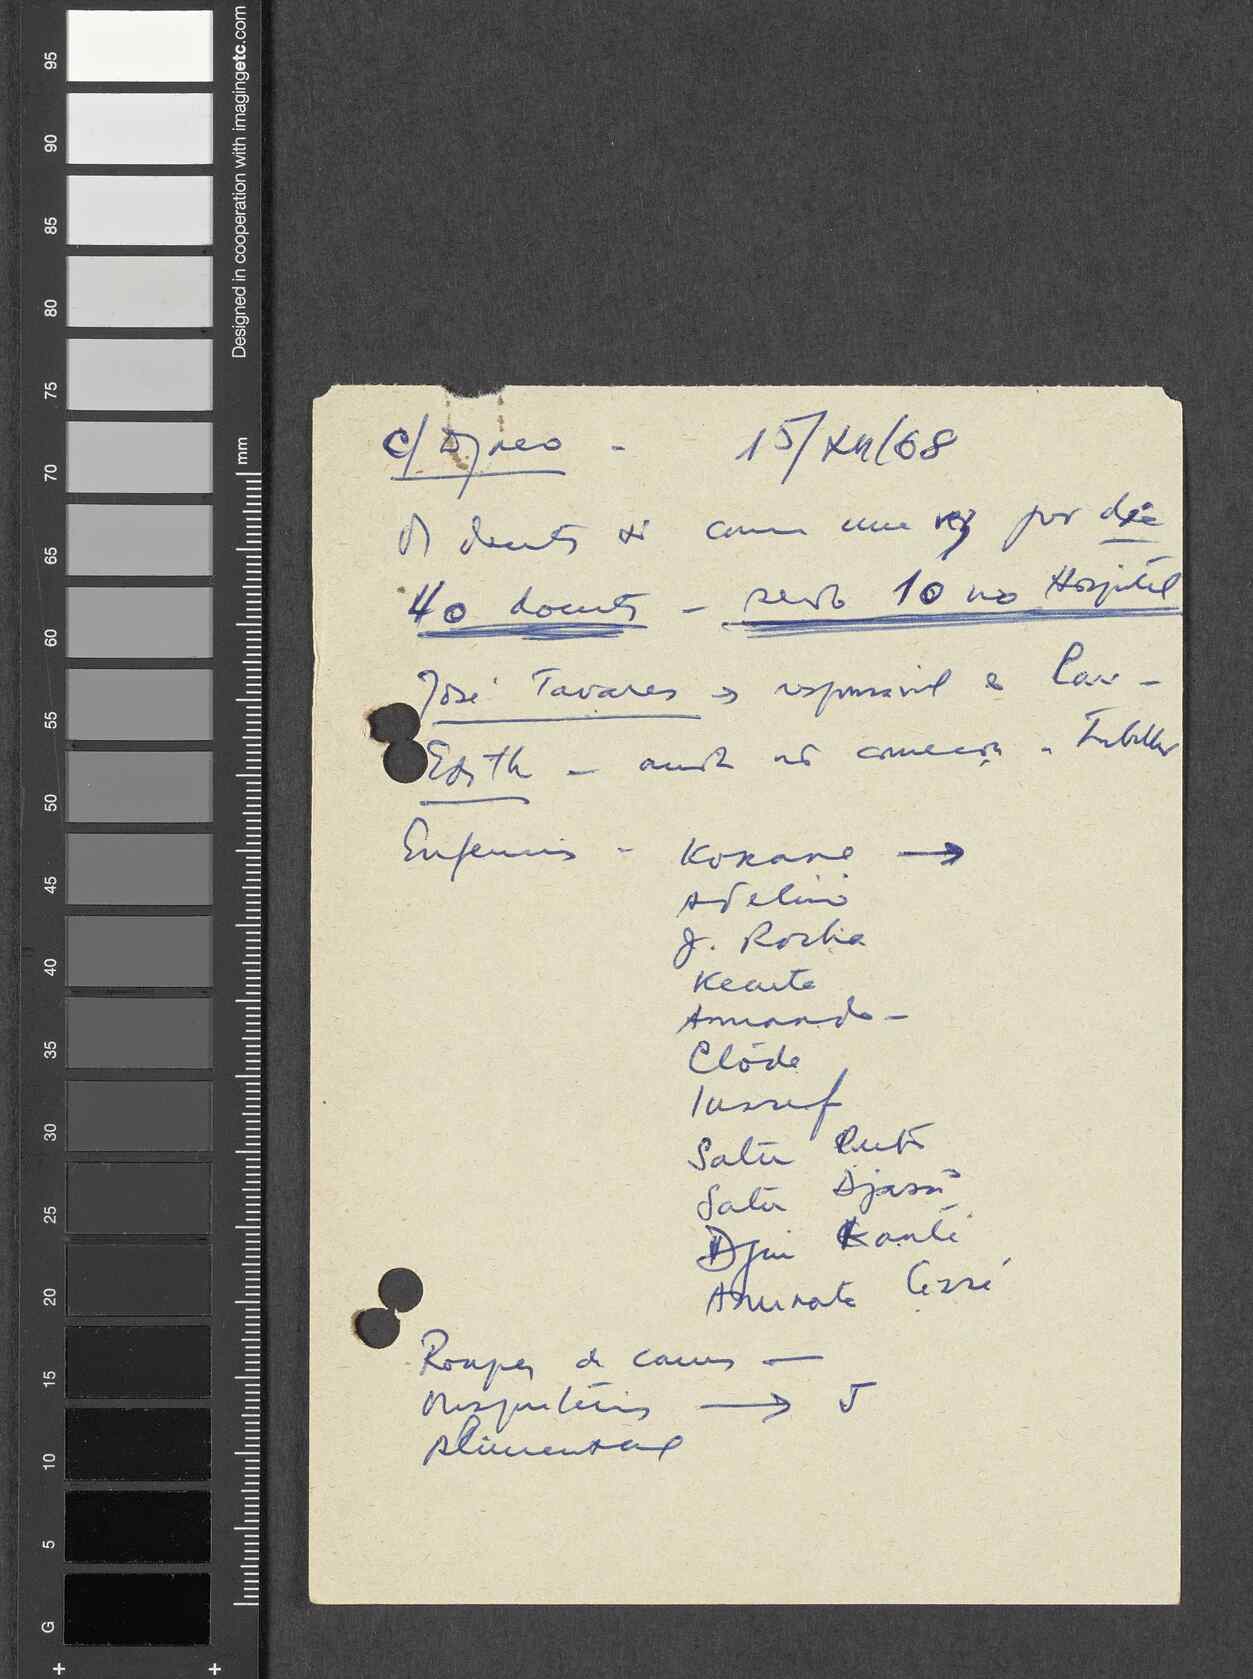 95
90
85
80
75
70
65
60
55
50
45
40
35
30
25
20
15
10
5
G
Designed in cooperation with imagingetc.com
mm
15/XII/68
Os doents só comem uma vez por dia
40 doents - sendo 10 no Hospital
José Tavares → responsável e Lar -
- ainda não começou -
Enfermeiros - Konane →
Adelino
J. Rocha
Keauta
Armando -
Clóde
Iussuf
Satu
Satu Djassi
Djui Kanté
Aminata Cissé
Roupas de camas —
Mosquiteiros → J
Alimentaç